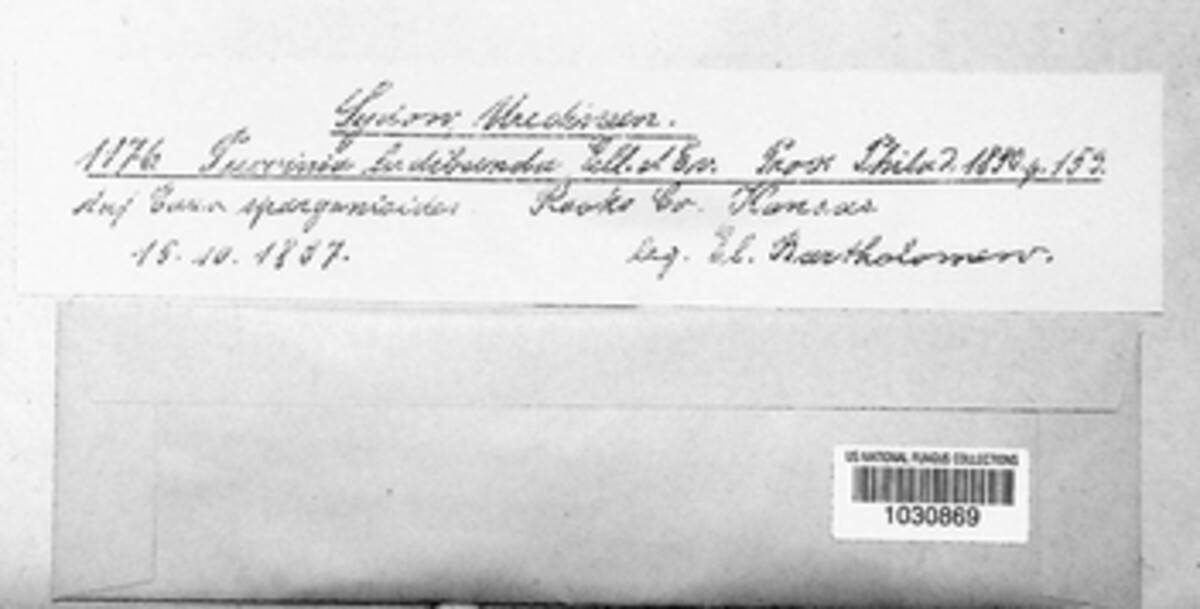 Sydow, Uredineen.
1176 Puccinia ludibunda Ell. et Ev. Proc. Philad. 1890 p. 153.
auf Carex sparganioides. Rooks Co. Kansas
15. 10. 1897.
leg. El. Bartholomew.
US NATIONAL FUNGUS COLLECTIONS
1030869